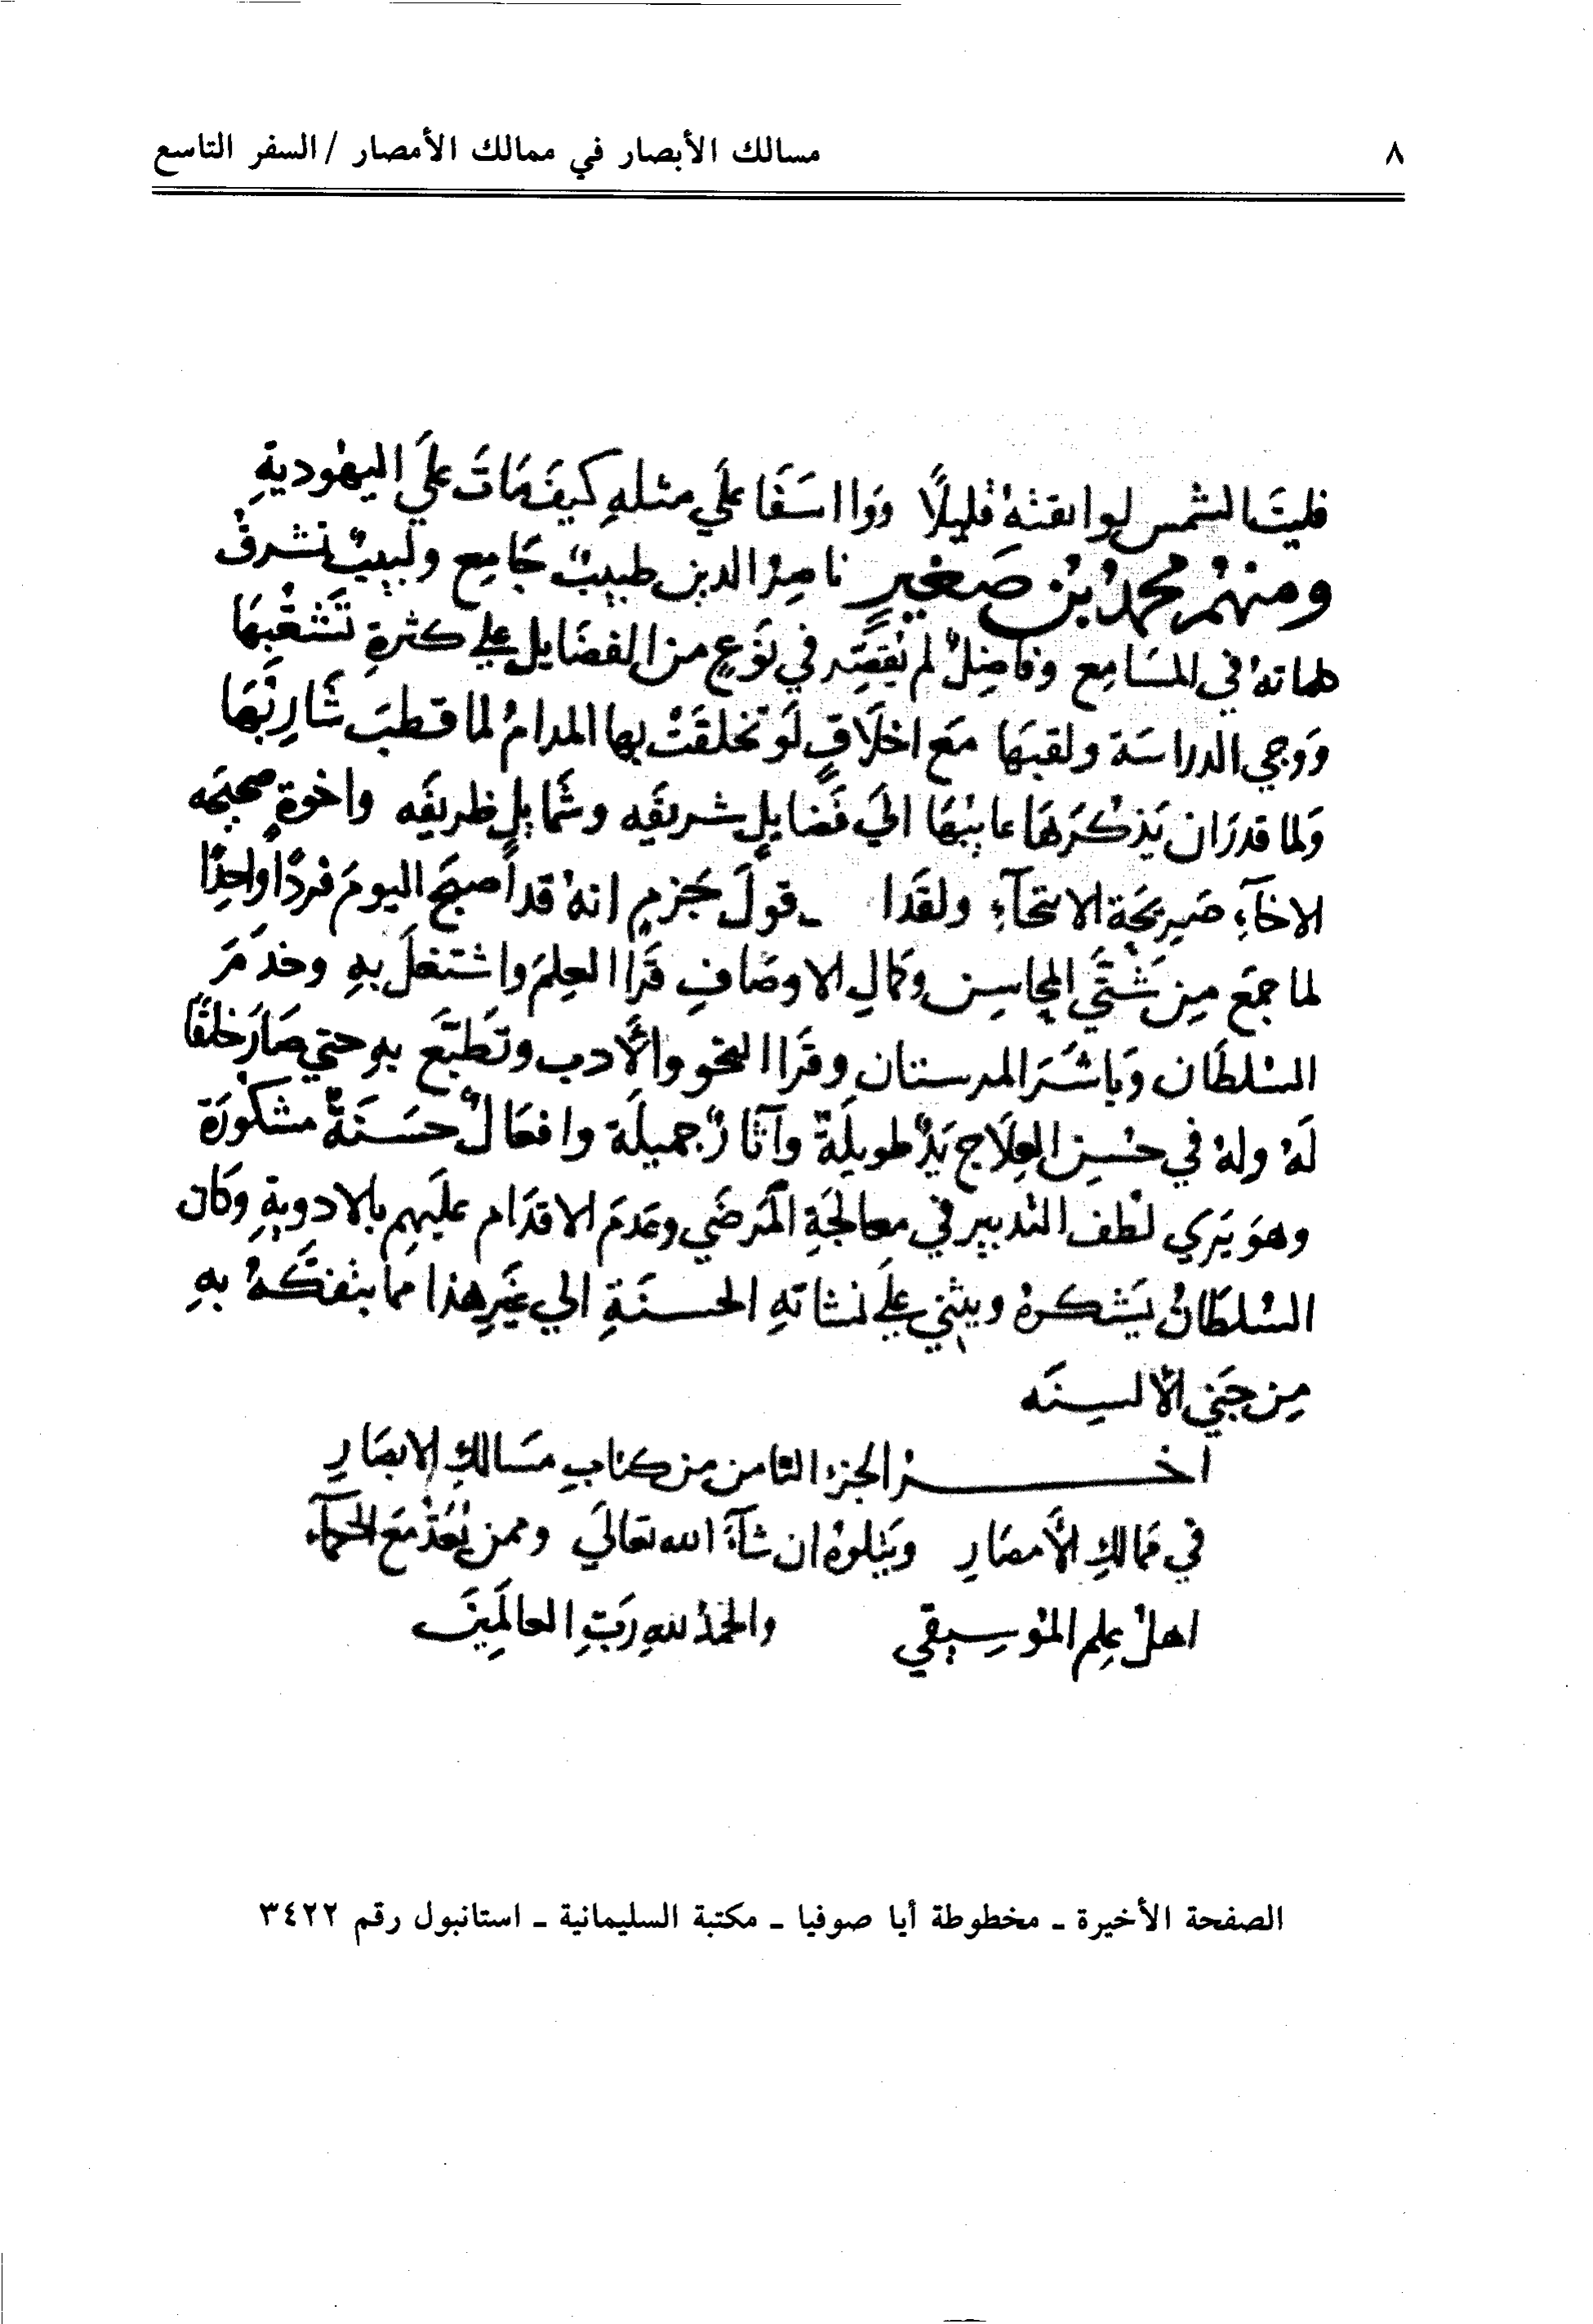 ٨ مسالك الأبصار في ممالك الأمصار / السفر التاسع
فليتَ الشمس لو ابقتهُ قليلًا ووا اسَفَا علَي مثلهِ كيفَ مَاتَ علَي اليهوديةِ
ومنهم محمدُ بْن صَغيرٍ ناصِرُ الدين طبيبٌ جَامِع ولبيبٌ تشرفُ
كلماتهُ في المسَامِع وفاضِلٌ لم في نَوعٍ من الفضَايل علي كثرةِ تَشَعّبهَا
الدراسَة مَع اخلَاقٍ لَو تخلقَتْ بها المدامُ لما قطبَ شَارِبُهَا
وَلما قدرَ ان يَذكرَهَا عايبُهَا اليَ فَضايلٍ شريفَه وشمَايلٍ ظريفَه واخوةٍ صحيحَه
الاخآءِ صَرِيحَة الانتخآءِ ولقَد ا قولَ جَزمٍ انهُ قد أصبحَ اليومَ فردًا واحِدًا
لما جمَع مِن شَتَّي المحاسِن وكمالِ الاوصَافِ قَرا العِلمَ واشتغلَ بهِ وخدَمَ
السُلطَان وَباشَرَ المرستان وقَرا النحو والأدب وتَطَبَّعَ بهِ حتي صَارَ خلقًا
لَهُ ولهُ في حُسنِ العِلَاج يَدٌ طويلَةٌ وآثارٌ جميلَة وافعَالٌ حسَنَةٌ مشكُورَة
وهوَ يَرَي لُطف التدبير في معالجَةِ المَرضَي وعَدَمَ الاقدَام علَيهِم بالادويةِ وكَان
السُلطَانُ يَشكرهُ ويثني علَي الحسنَةِ الي غَيرِ هذا مما يتفكهُ بهِ
مِن جَنيِ الألسِنَه
اخر الجزء الثامن من كتابِ مسَالكِ الابصَارِ
في ممالكِ الأَمصَارِ وَيَتلوهُ ان شآءَ الله تعالَي وممن يُعَدّ مَعَ الحكمآء
اهلُ عِلمِ الموُسِيقي والحَمدُ للهِ رَبِّ العالَمِينَ
الصفحة الأخيرة ـ مخطوطة أيا صوفيا ـ مكتبة السليمانية ـ استانبول رقم ٣٤٢٢